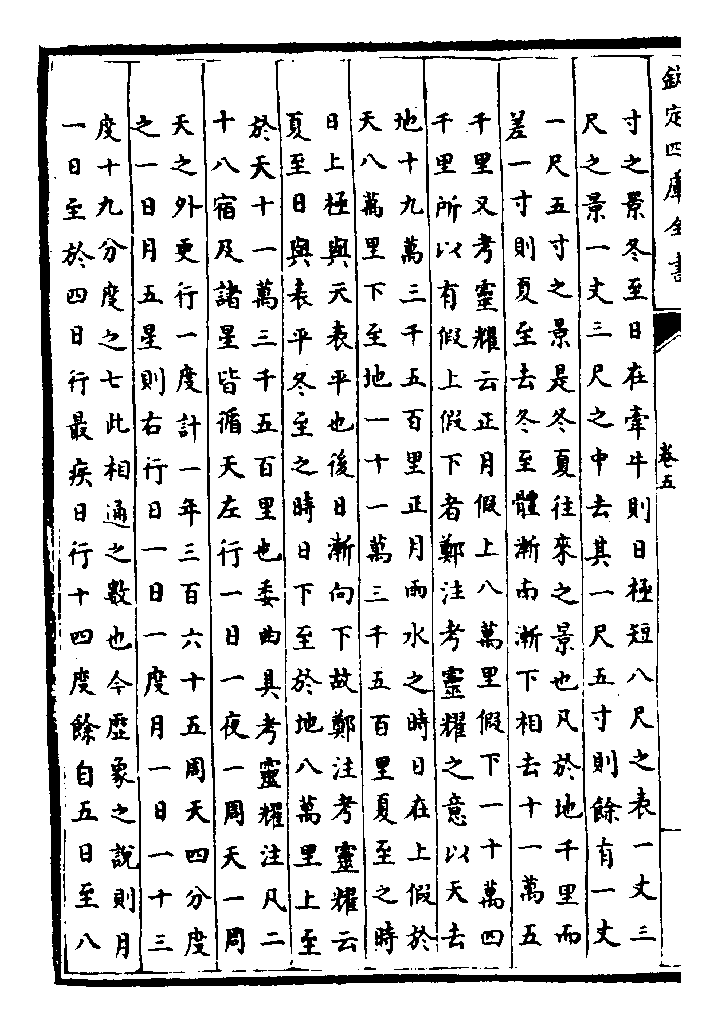 欽定四庫全書
卷五
寸之景冬至日在牽牛則日極短八尺之表一丈三
尺之景一丈三尺之中去其一尺五寸則餘有一丈
一尺五寸之景是冬夏往來之景也凡於地千里而
差一寸則夏至去冬至體漸南漸下相去十一萬五
千里又考靈耀云正月假上八萬里假下一十萬四
千里所以有假上假下者鄭注考靈耀之意以天去
地十九萬三千五百里正月雨水之時日在上假於
天八萬里下至地一十一萬三千五百里夏至之時
日上極與天表平也後日漸向下故鄭注考靈耀云
夏至日與表平冬至之時日下至於地八萬里上至
於天十一萬三千五百里也委曲具考靈耀注凡二
十八宿及諸星皆循天左行一日一夜一周天一周
天之外更行一度計一年三百六十五周天四分度
之一日月五星則右行日一日一度月一日一十三
度十九分度之七此相通之數也今歴象之說則月
一日至於四日行最疾日行十四度餘自五日至八